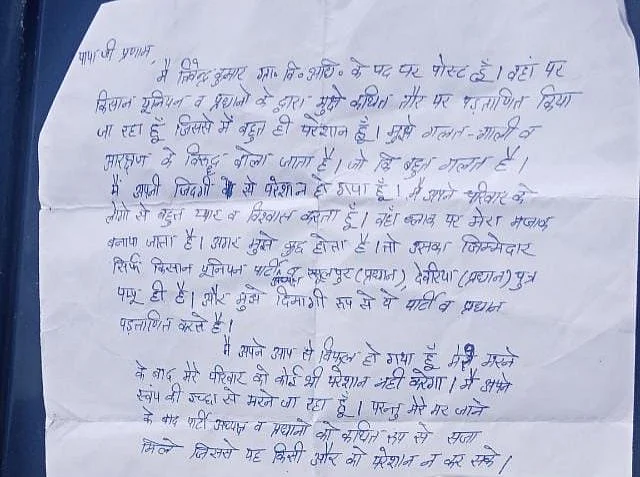 पापा जी प्रणाम,
मै जितेन्द्र कुमार ग्रा॰ वि॰ अधि॰ के पद पर पोस्ट हूँ। वहां पर
किसान यूनियन व प्रधानो के द्वारा मुझे कथित तौर पर पड़ताणित किया
जा रहा हूँ जिससे मैं बहुत ही परेशान हूँ। मुझे गलत-गाली व
के विरुद्ध बोला जाता है। जो कि बहुत गलत है।
मैं अपनी जिदगी से परेशान हो गया हूँ। मै अपने परिवार के
लोगो से बहुत प्यार व विश्वास करता हूँ। वहाँ ब्लाक पर मेरा मजाक
बनाया जाता है। अगर मुझे कुछ होता है। तो उसका जिम्मेदार
सिर्फ किसान यूनियन पार्टी अध्यक्ष व रसूलपुर (प्रधान), देवरिया (प्रधान) पुत्र
पप्पू ही है। और मुझे दिमागी रूप से ये पार्टी व प्रधान
पड़ताणित करते है।
मै अपने आप से विफल हो गया हूँ मेरे मरने
के बाद मेरे परिवार को कोई भी परेशान नही करेगा। मै अपने
स्वंय की इच्छा से मरने जा रहा हूँ। परन्तु मेरे मर जाने
के बाद पार्टी अध्यक्ष व प्रधानो को कथित रूप से सजा
मिले जिससे यह किसी और को परेशान न कर सके।